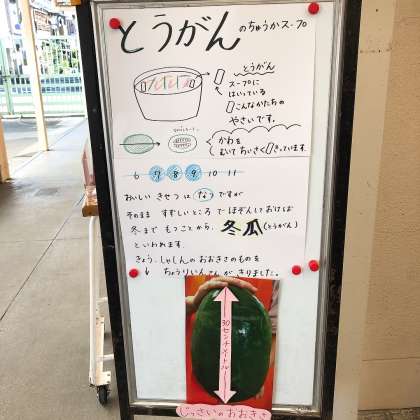 とうがん のちゅうかスープ
とうがん
スープに
はいっている
こんなかたちの
やさいです。
かわを
むいて ちいさく きっています。
6 7 8 9 10 11
おいしい きせつ は なつ ですが
そのまま すずしいところ で ほぞんしておけば
冬まで もつことから、冬瓜(とうがん)
といわれます。
きょう、しゃしんの おおきさのものを
ちょうりいんさんが きりました。
30センチメートル
じっさいのおおきさ